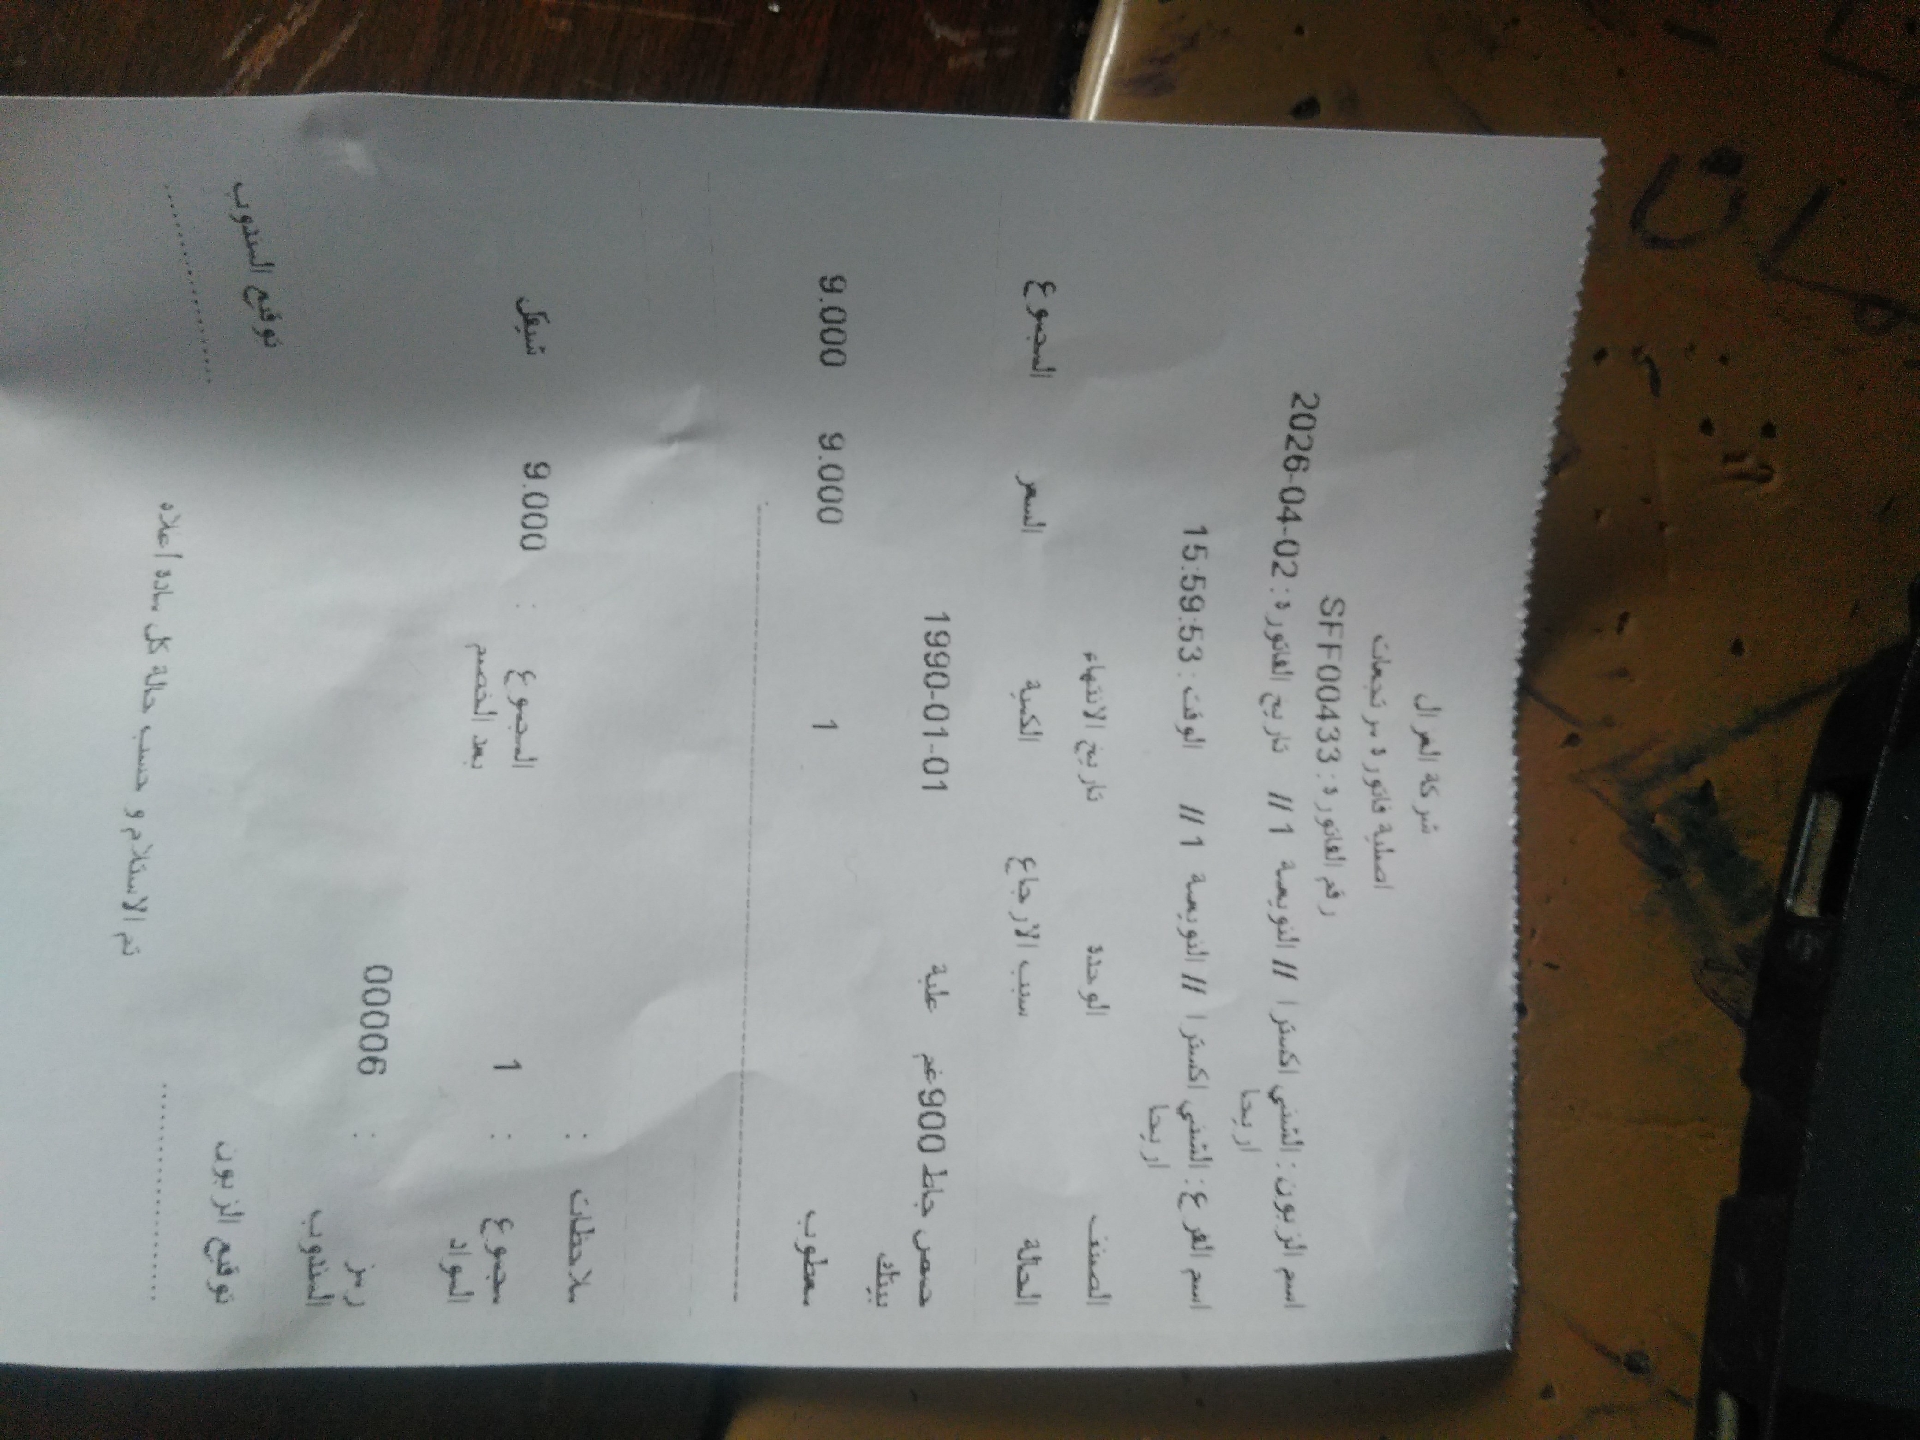 شركة الغزال
اصلية فاتورة مرتجعات
رقم الفاتورة: SFF00433
اسم الزبون: الشني اكسترا // النويعمة 1 // تاريخ الفاتورة: 2026-04-02
اريحا
اسم الفرع: الشني اكسترا // النويعمة 1 // الوقت: 15:59:53
اريحا
الصنف الوحدة تاريخ الانتهاء
الحالة سبب الارجاع الكمية السعر المجموع
حمص جاط 900غم علبة 1990-01-01
بيتك
معطوب 1 9.000 9.000
ملاحظات :
مجموع المواد : 1 المجموع بعد الخصم : 9.000 شيقل
رمز المندوب : 00006
توقيع الزبون توقيع المندوب
تم الاستلام و حسب حالة كل مادة اعلاه